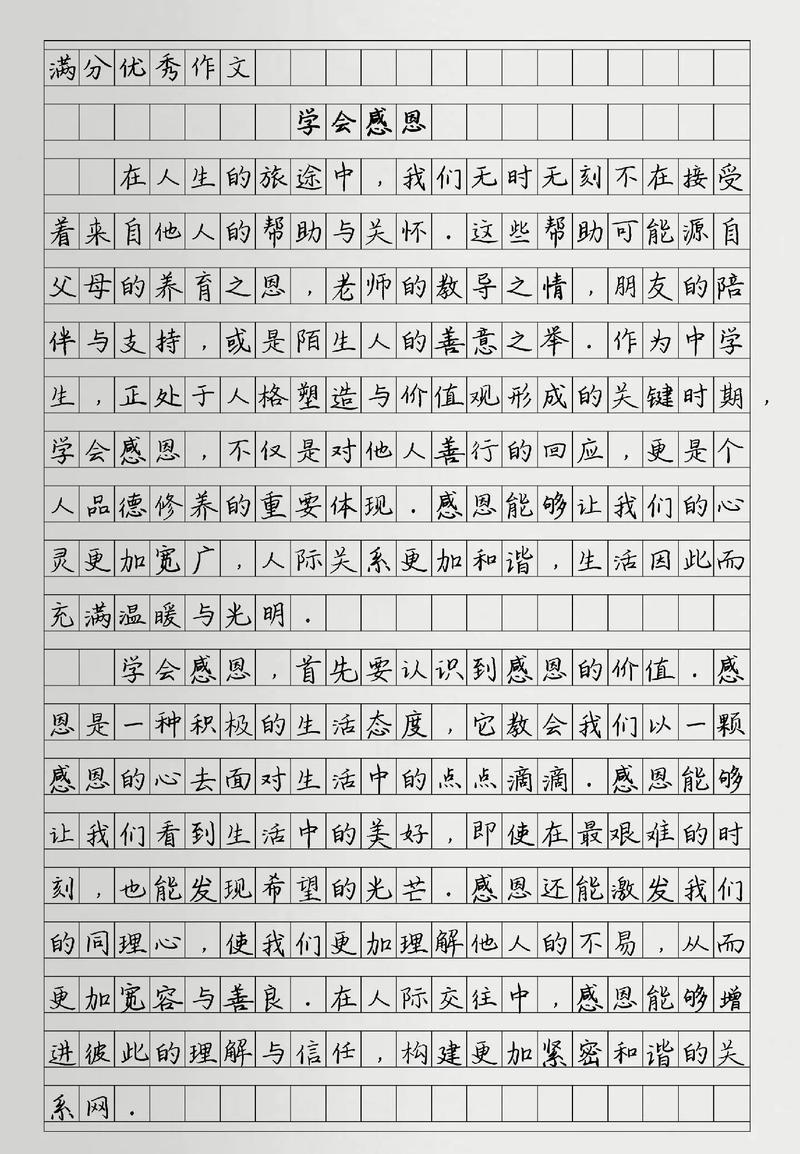 满分优秀作文
学会感恩
在人生的旅途中，我们无时无刻不在接受
着来自他人的帮助与关怀．这些帮助可能源自
父母的养育之恩，老师的教导之情，朋友的陪
伴与支持，或是陌生人的善意之举．作为中学
生，正处于人格塑造与价值观形成的关键时期，
学会感恩，不仅是对他人善行的回应，更是个
人品德修养的重要体现．感恩能够让我们的心
灵更加宽广，人际关系更加和谐，生活因此而
充满温暖与光明．
学会感恩，首先要认识到感恩的价值．感
恩是一种积极的生活态度，它教会我们以一颗
感恩的心去面对生活中的点点滴滴．感恩能够
让我们看到生活中的美好，即使在最艰难的时
刻，也能发现希望的光芒．感恩还能激发我们
的同理心，使我们更加理解他人的不易，从而
更加宽容与善良．在人际交往中，感恩能够增
进彼此的理解与信任，构建更加紧密和谐的关
系网．